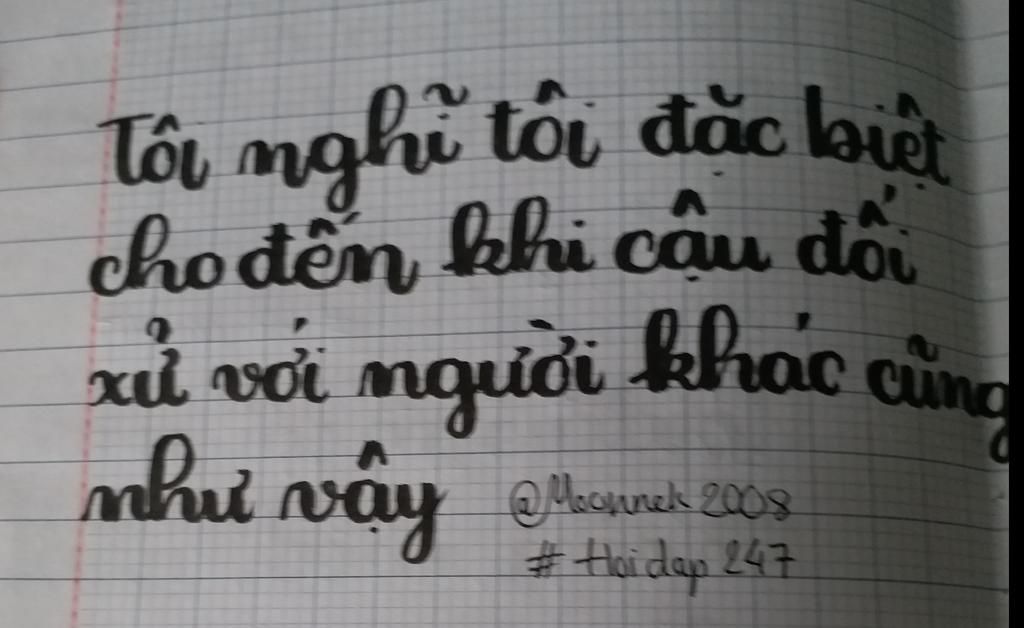 Tôi nghĩ tôi đặc biệt
cho đến khi cậu đối
xử với người khác cũng
như vậy
@Moonnek2008
#Hoidap247